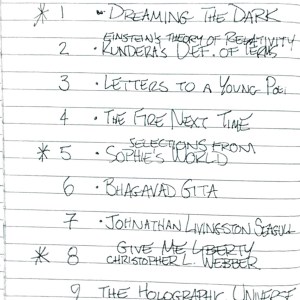 * 1 • DREAMING THE DARK
EINSTEIN'S THEORY OF RELATIVITY
2 • KUNDERA'S DEF. OF TERMS
3 • LETTERS TO A YOUNG POE
4 • THE FIRE NEXT TIME
SELECTIONS FROM
* 5 • SOPHIE'S WORLD
6 • BHAGAVAD GITA
7 • JOHNATHAN LIVINGSTON SEAGULL
GIVE ME LIBERTY
* 8 • CHRISTOPHER L. WEBBER
9 THE HOLOGRAPHIC UNIVERSE